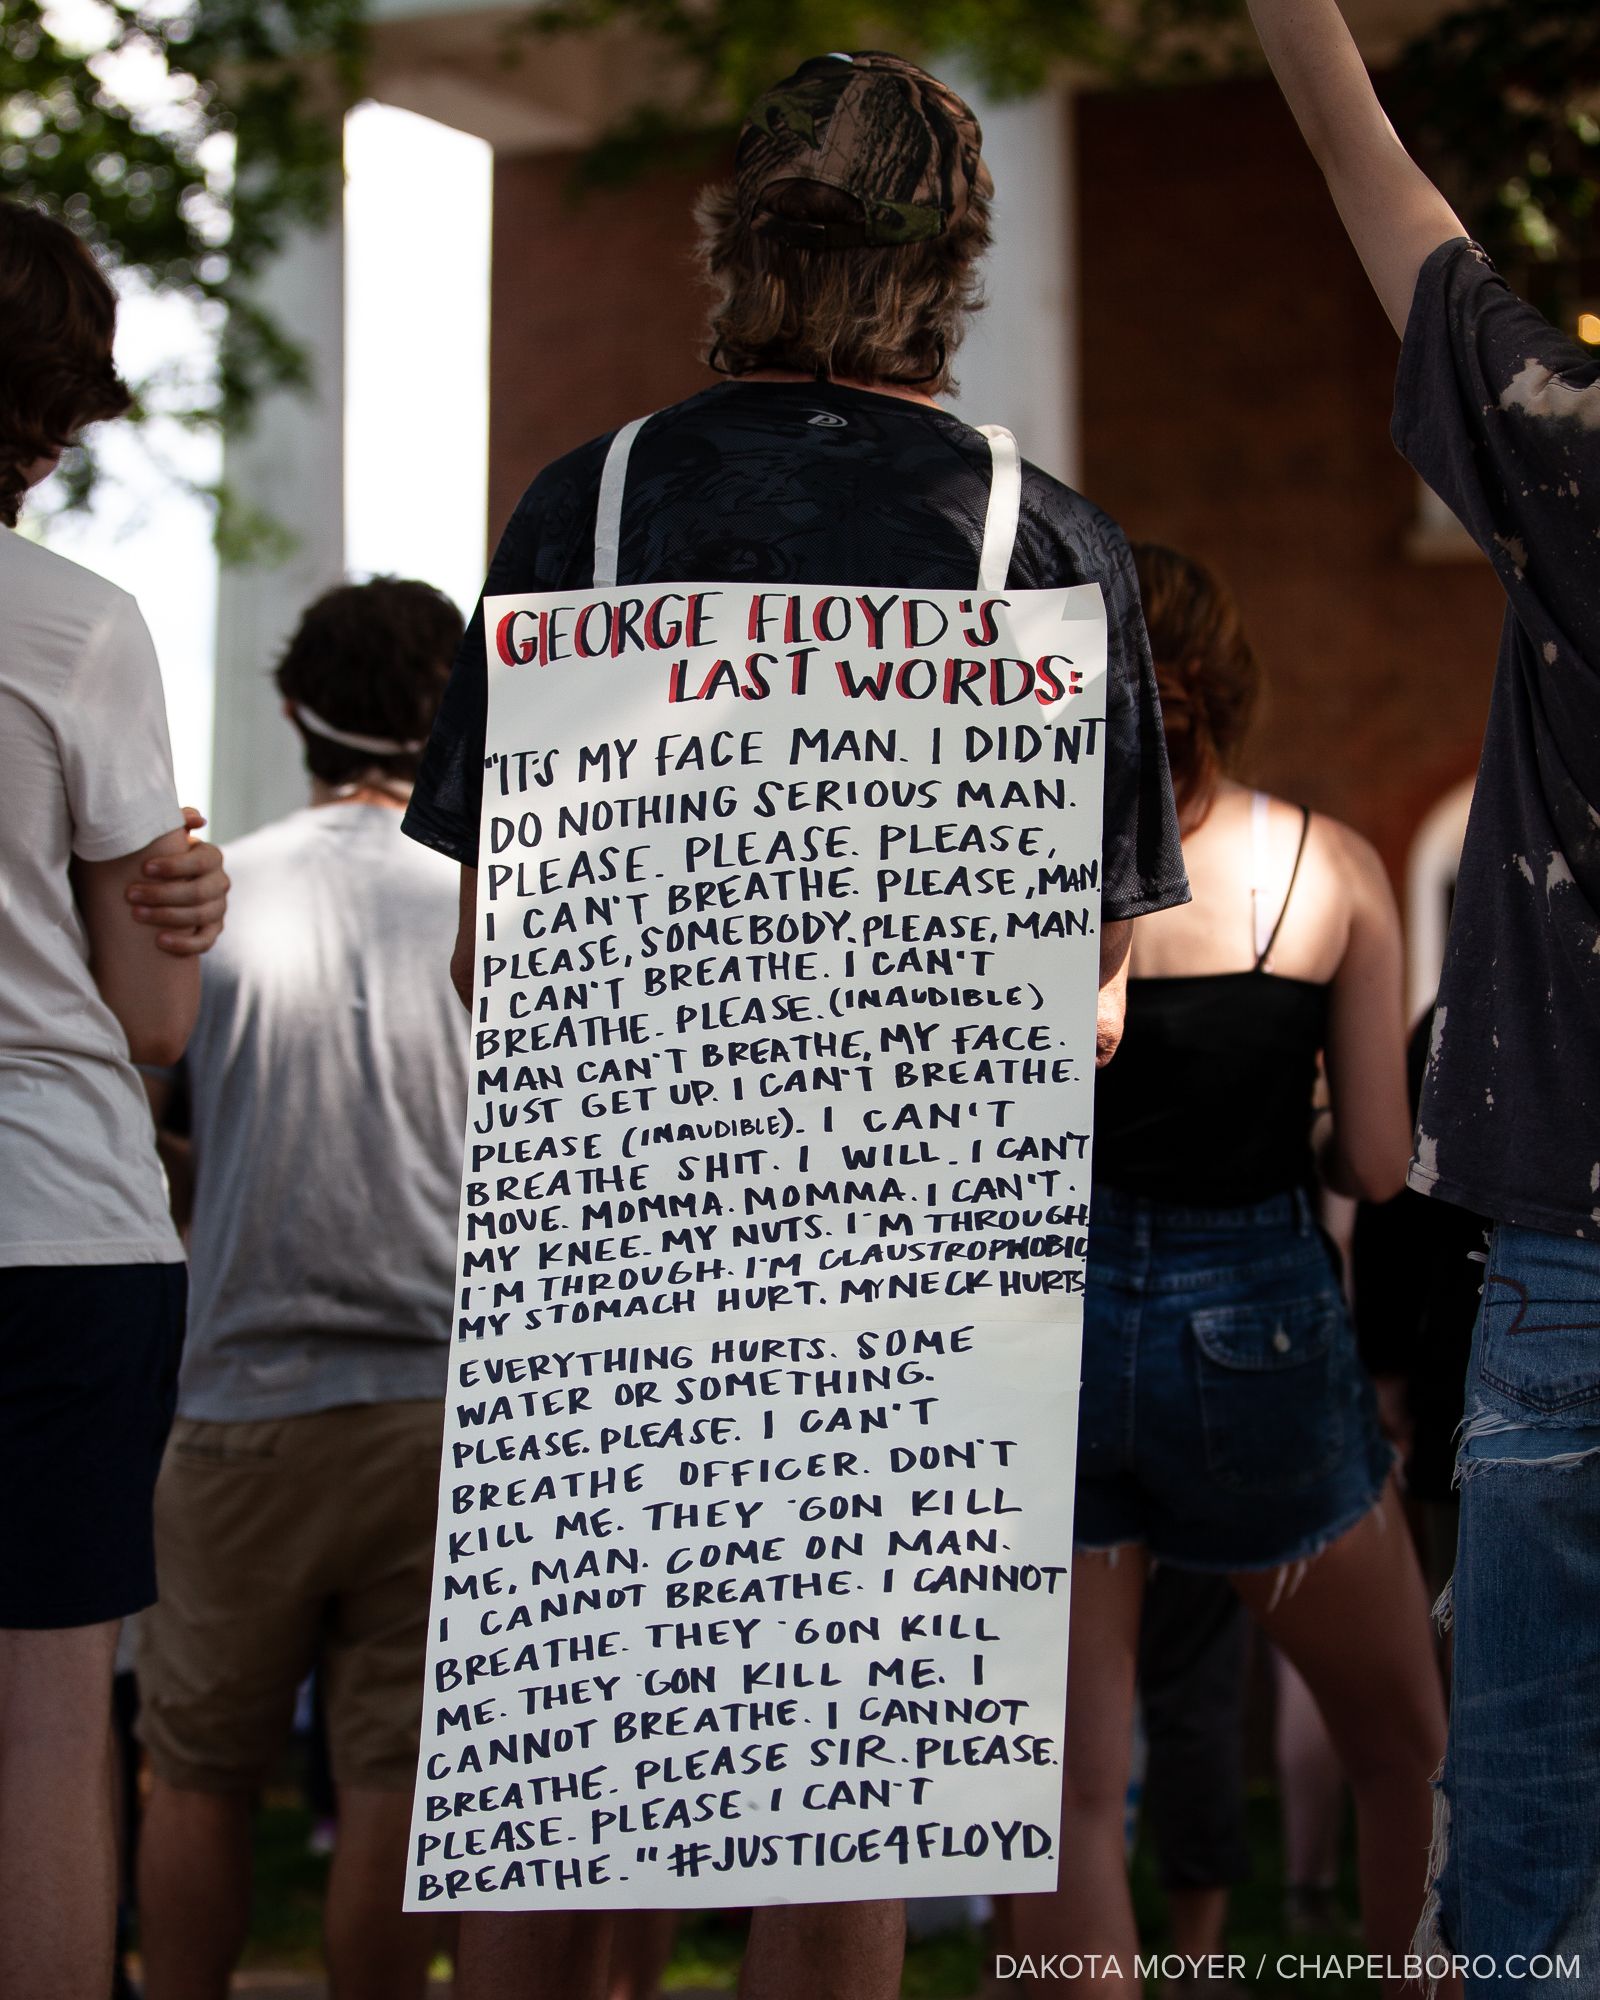 GEORGE FLOYD'S
LAST WORDS:
"IT'S MY FACE MAN. I DID'NT
DO NOTHING SERIOUS MAN.
PLEASE. PLEASE. PLEASE,
I CAN'T BREATHE. PLEASE, MAN.
PLEASE, SOMEBODY. PLEASE, MAN.
I CAN'T BREATHE. I CAN'T
BREATHE. PLEASE. (INAUDIBLE)
MAN CAN'T BREATHE, MY FACE.
JUST GET UP. I CAN'T BREATHE.
PLEASE (INAUDIBLE). I CAN'T
BREATHE SHIT. I WILL. I CAN'T
MOVE. MOMMA. MOMMA. I CAN'T.
MY KNEE. MY NUTS. I'M THROUGH.
I'M THROUGH. I'M CLAUSTROPHOBIC
MY STOMACH HURT. MY NECK HURTS.
EVERYTHING HURTS. SOME
WATER OR SOMETHING.
PLEASE. PLEASE. I CAN'T
BREATHE OFFICER. DON'T
KILL ME. THEY 'GON KILL
ME, MAN. COME ON MAN.
I CANNOT BREATHE. I CANNOT
BREATHE. THEY 'GON KILL
ME. THEY 'GON KILL ME. I
CANNOT BREATHE. I CANNOT
BREATHE. PLEASE SIR. PLEASE.
PLEASE. PLEASE I CAN'T
BREATHE." #JUSTICE4FLOYD.
DAKOTA MOYER / CHAPELBORO.COM